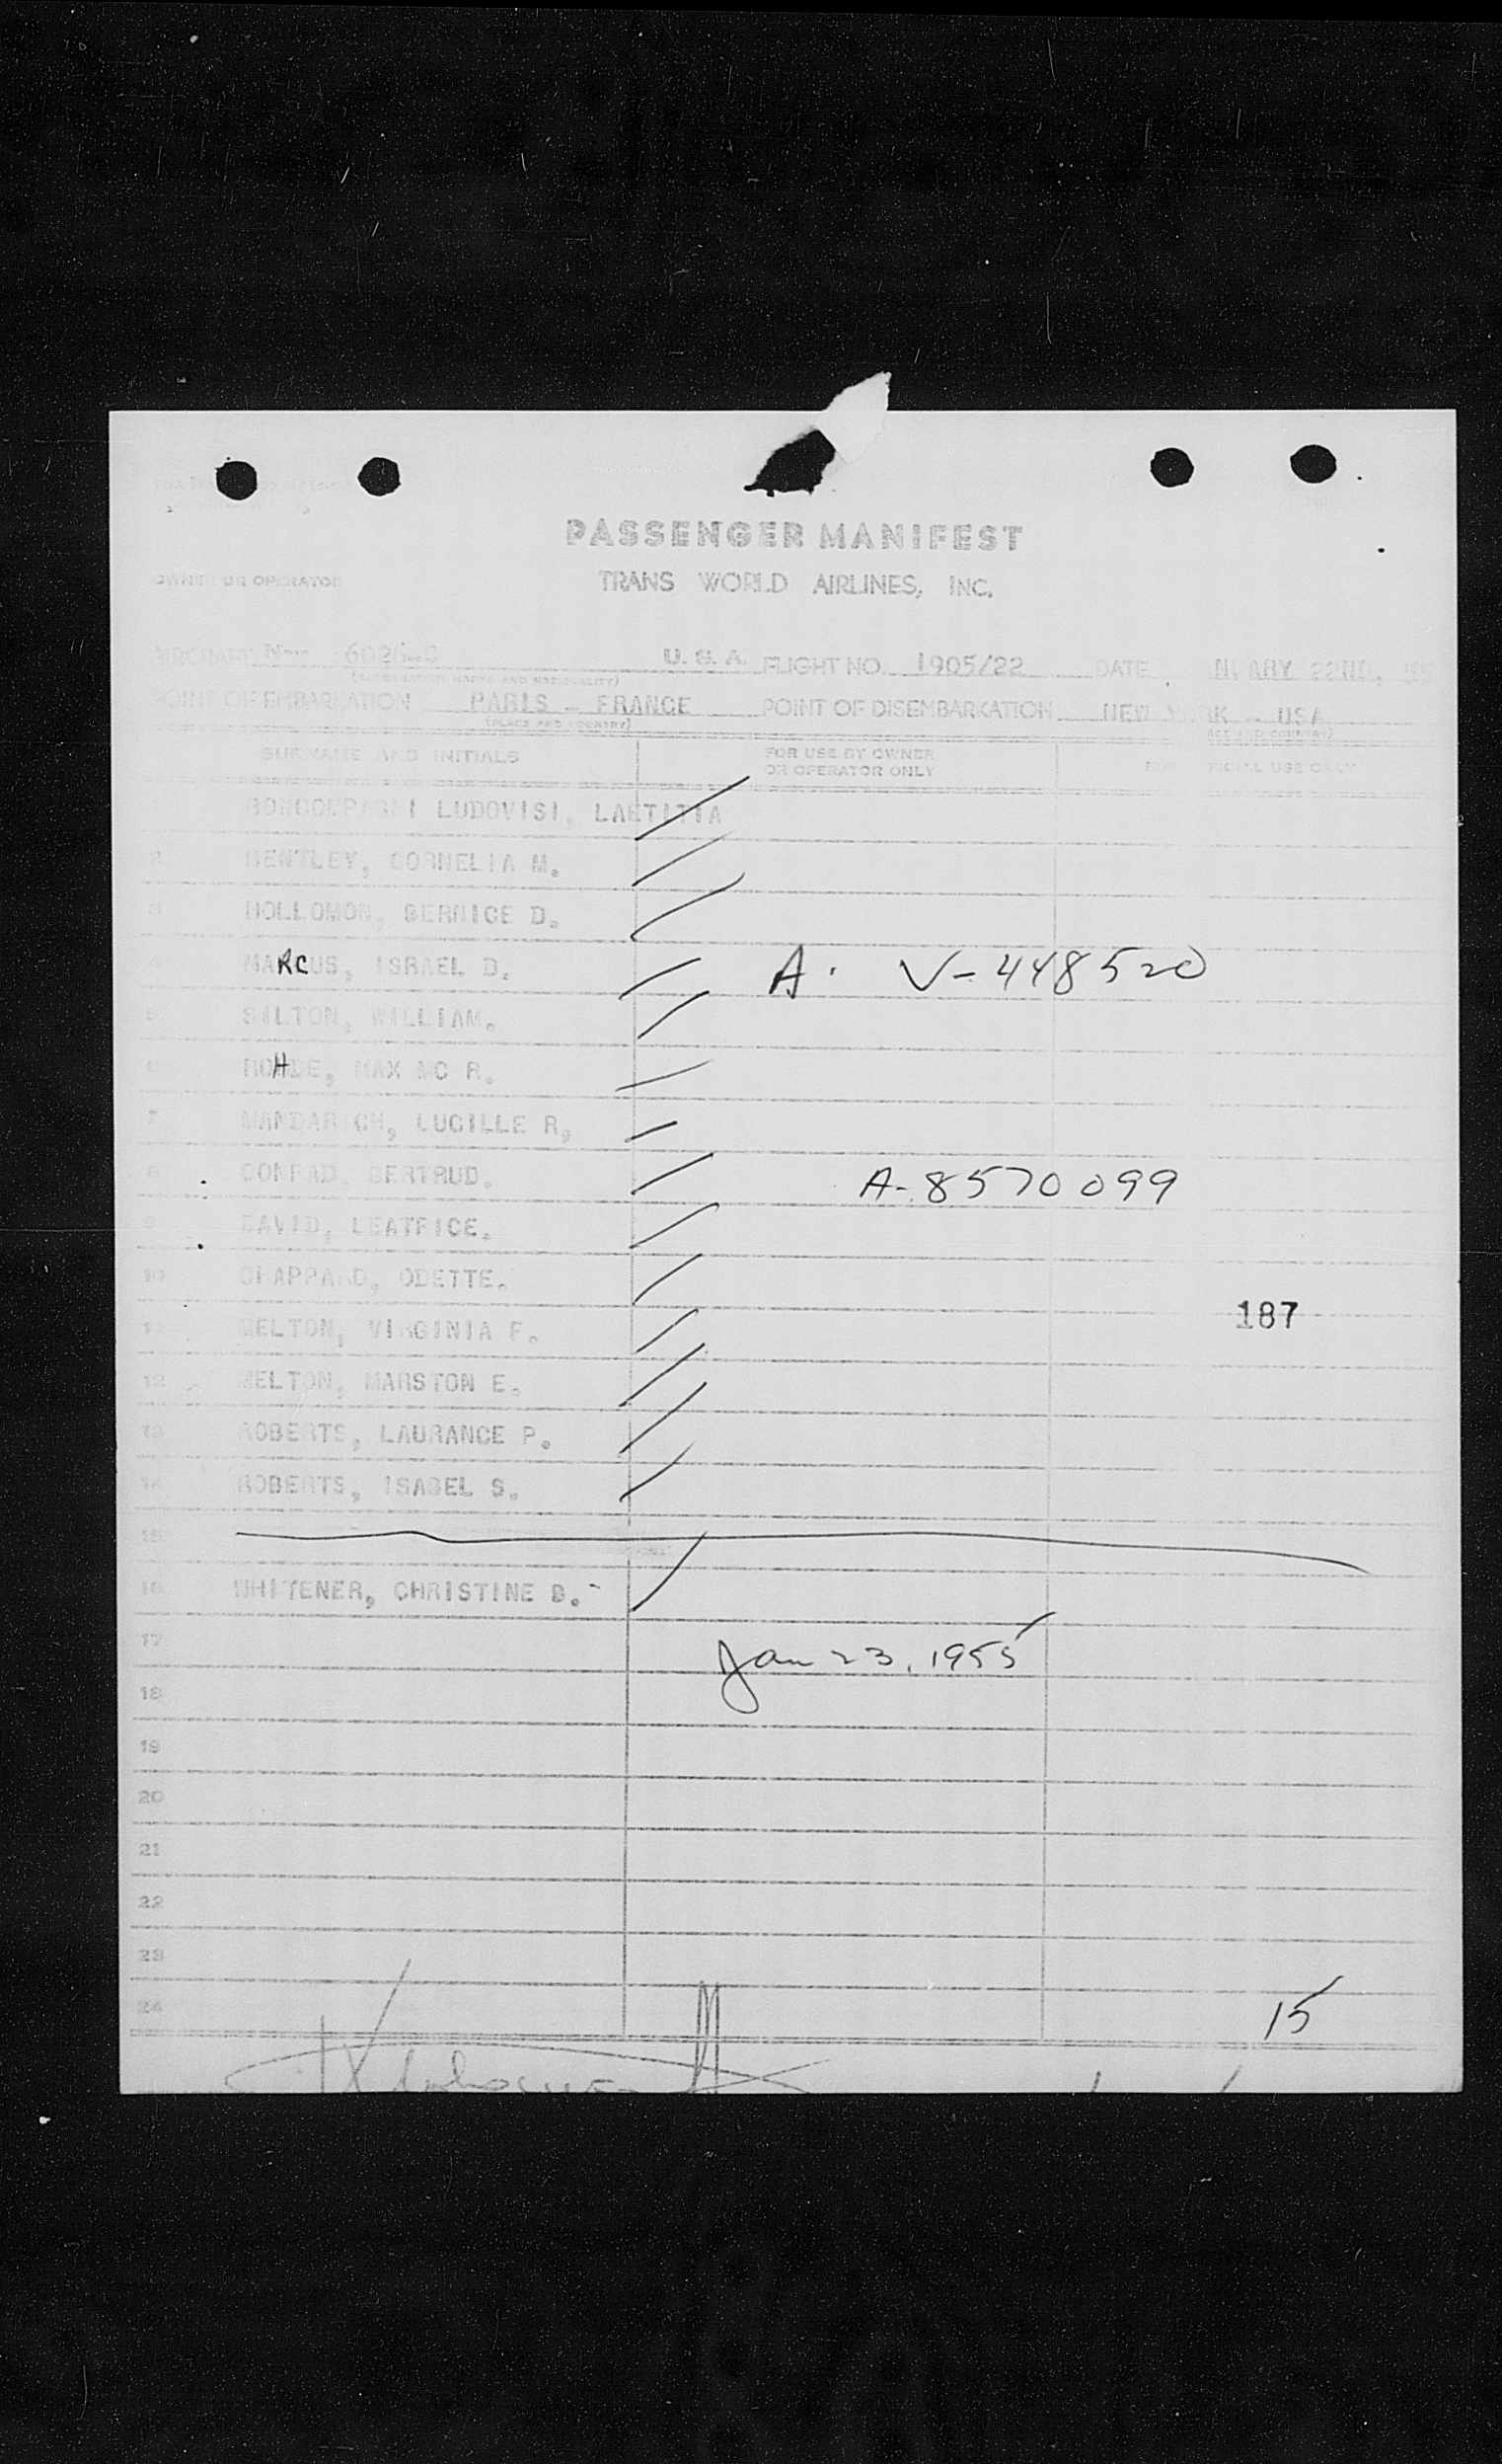 PASSENGER MANIFEST
OWNER OR OPERATOR TRANS WORLD AIRLINES, INC.
AIRCRAFT N-- 6026-C U. S. A. FLIGHT NO. 1905/22 DATE NUARY 22ND,
POINT OF EMBARKATION PARIS - FRANCE POINT OF DISEMBARKATION NEW YORK - USA
(PLACE AND COUNTRY)
SURNAME AND INITIALS FOR USE BY OWNER OR OPERATOR ONLY FOR OFFICIAL USE ONLY
LUDOVISI, LAETITIA
2 BENTLEY, CORNELIA M.
3 HOLLOMON, BERNICE D.
4 MARCUS, ISRAEL D. A. V-448520
5 SILTON, WILLIAM.
6 ROHDE, MAX MC R.
7 MANDARICH, LUCILLE R,
8 CONRAD, GERTRUD. A-8570099
9 DAVID, LEATRICE.
10 CHAPPARD, ODETTE.
187
11 MELTON, VIRGINIA F.
12 MELTON, MARSTON E.
13 ROBERTS, LAURANCE P.
14 ROBERTS, ISABEL S.
15
16 WHITENER, CHRISTINE B.-
17 Jan 23, 1955
18
19
20
21
22
23
24 15